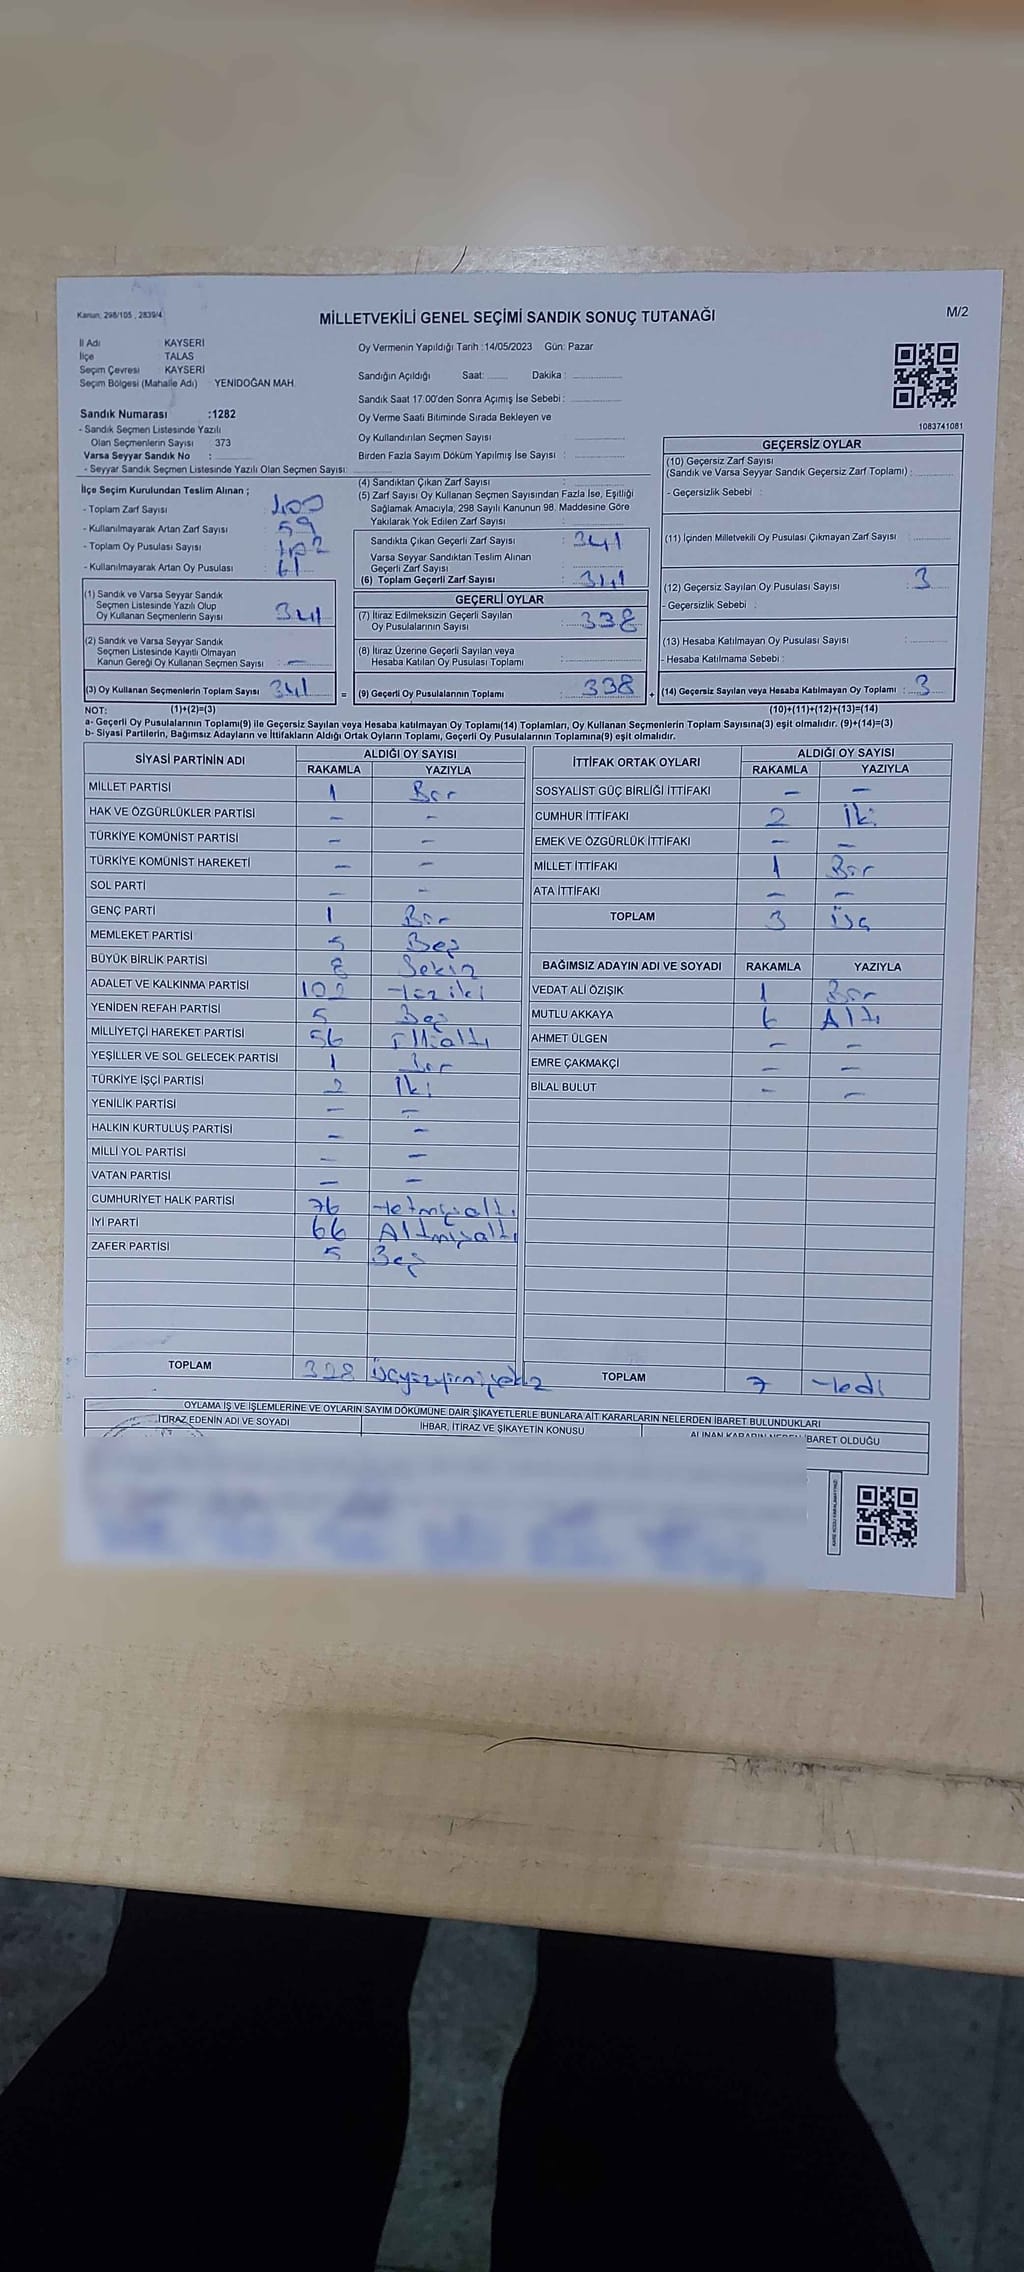 Kanun: 298/105 , 2839/4
MİLLETVEKİLİ GENEL SEÇİMİ SANDIK SONUÇ TUTANAĞI
M/2
İl Adı KAYSERİ
İlçe TALAS
Seçim Çevresi KAYSERİ
Seçim Bölgesi (Mahalle Adı) YENİDOĞAN MAH.
Sandık Numarası :1282
- Sandık Seçmen Listesinde Yazılı
Olan Seçmenlerin Sayısı : 373
Varsa Seyyar Sandık No :
- Seyyar Sandık Seçmen Listesinde Yazılı Olan Seçmen Sayısı:
Oy Vermenin Yapıldığı Tarih :14/05/2023 Gün: Pazar
Sandığın Açıldığı Saat: Dakika :
Sandık Saat 17.00'den Sonra Açımış İse Sebebi :
Oy Verme Saati Bitiminde Sırada Bekleyen ve
Oy Kullandırılan Seçmen Sayısı
Birden Fazla Sayım Döküm Yapılmış İse Sayısı :
1083741081
İlçe Seçim Kurulundan Teslim Alınan ;
- Toplam Zarf Sayısı : 400
- Kullanılmayarak Artan Zarf Sayısı : 59
- Toplam Oy Pusulası Sayısı :
- Kullanılmayarak Artan Oy Pusulası : 61
(1) Sandık ve Varsa Seyyar Sandık
Seçmen Listesinde Yazılı Olup
Oy Kullanan Seçmenlerin Sayısı : 341
(2) Sandık ve Varsa Seyyar Sandık
Seçmen Listesinde Kayıtlı Olmayan
Kanun Gereği Oy Kullanan Seçmen Sayısı : -
(3) Oy Kullanan Seçmenlerin Toplam Sayısı : 341 =
(4) Sandıktan Çıkan Zarf Sayısı :
(5) Zarf Sayısı Oy Kullanan Seçmen Sayısından Fazla İse, Eşitliği
Sağlamak Amacıyla, 298 Sayılı Kanunun 98. Maddesine Göre
Yakılarak Yok Edilen Zarf Sayısı :
Sandıkta Çıkan Geçerli Zarf Sayısı : 341
Varsa Seyyar Sandıktan Teslim Alınan
Geçerli Zarf Sayısı :
(6) Toplam Geçerli Zarf Sayısı : 341
GEÇERLİ OYLAR
(7) İtiraz Edilmeksizin Geçerli Sayılan
Oy Pusulalarının Sayısı : 338
(8) İtiraz Üzerine Geçerli Sayılan veya
Hesaba Katılan Oy Pusulası Toplamı :
(9) Geçerli Oy Pusulalarının Toplamı : 338 +
GEÇERSİZ OYLAR
(10) Geçersiz Zarf Sayısı
(Sandık ve Varsa Seyyar Sandık Geçersiz Zarf Toplamı) :
- Geçersizlik Sebebi :
(11) İçinden Milletvekili Oy Pusulası Çıkmayan Zarf Sayısı :
(12) Geçersiz Sayılan Oy Pusulası Sayısı : 3
- Geçersizlik Sebebi :
(13) Hesaba Katılmayan Oy Pusulası Sayısı :
- Hesaba Katılmama Sebebi :
(14) Geçersiz Sayılan veya Hesaba Katılmayan Oy Toplamı : 3
NOT: (1)+(2)=(3) (10)+(11)+(12)+(13)=(14)
a- Geçerli Oy Pusulalarının Toplamı(9) ile Geçersiz Sayılan veya Hesaba katılmayan Oy Toplamı(14) Toplamları, Oy Kullanan Seçmenlerin Toplam Sayısına(3) eşit olmalıdır. (9)+(14)=(3)
b- Siyasi Partilerin, Bağımsız Adayların ve İttifakların Aldığı Ortak Oyların Toplamı, Geçerli Oy Pusulalarının Toplamına(9) eşit olmalıdır.
SİYASİ PARTİNİN ADI ALDIĞI OY SAYISI
RAKAMLA YAZIYLA
MİLLET PARTİSİ 1 Bir
HAK VE ÖZGÜRLÜKLER PARTİSİ - -
TÜRKİYE KOMÜNİST PARTİSİ - -
TÜRKİYE KOMÜNİST HAREKETİ - -
SOL PARTİ - -
GENÇ PARTİ 1 Bir
MEMLEKET PARTİSİ 5 Beş
BÜYÜK BİRLİK PARTİSİ 8 Sekiz
ADALET VE KALKINMA PARTİSİ 102 Yüz iki
YENİDEN REFAH PARTİSİ 5 Beş
MİLLİYETÇİ HAREKET PARTİSİ 56 Elli altı
YEŞİLLER VE SOL GELECEK PARTİSİ 1 Bir
TÜRKİYE İŞÇİ PARTİSİ 2 İki
YENİLİK PARTİSİ - -
HALKIN KURTULUŞ PARTİSİ - -
MİLLİ YOL PARTİSİ - -
VATAN PARTİSİ - -
CUMHURİYET HALK PARTİSİ 76 Yetmişaltı
İYİ PARTİ 66 Altmışaltı
ZAFER PARTİSİ 5 Beş
TOPLAM 328 Üçyüzyirmisekiz
İTTİFAK ORTAK OYLARI ALDIĞI OY SAYISI
RAKAMLA YAZIYLA
SOSYALİST GÜÇ BİRLİĞİ İTTİFAKI - -
CUMHUR İTTİFAKI 2 İki
EMEK VE ÖZGÜRLÜK İTTİFAKI - -
MİLLET İTTİFAKI 1 Bir
ATA İTTİFAKI - -
TOPLAM 3 Üç
BAĞIMSIZ ADAYIN ADI VE SOYADI RAKAMLA YAZIYLA
VEDAT ALİ ÖZIŞIK 1 Bir
MUTLU AKKAYA 6 Altı
AHMET ÜLGEN - -
EMRE ÇAKMAKÇİ - -
BİLAL BULUT - -
TOPLAM 7 Yedi
OYLAMA İŞ VE İŞLEMLERİNE VE OYLARIN SAYIM DÖKÜMÜNE DAİR ŞİKAYETLERLE BUNLARA AİT KARARLARIN NELERDEN İBARET BULUNDUKLARI
İTİRAZ EDENİN ADI VE SOYADI
İHBAR, İTİRAZ VE ŞİKAYETİN KONUSU
ALINAN KARARIN NEDEN İBARET OLDUĞU